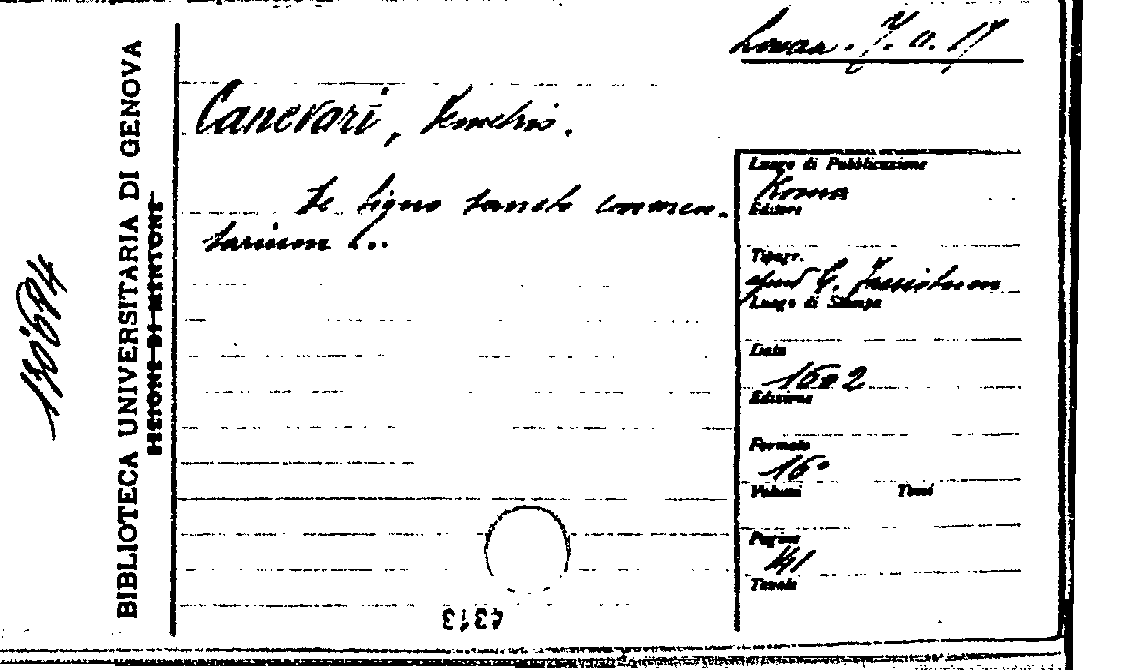 7. a. 17
Canevari, Demetrio.
De ligno sancto commen-
tarium ...
Luogo di Pubblicazione
Roma
Editore
Tipogr.
apud
Luogo di Stampa
Data
1602
Edizione
Formato
16°
Volumi Tomi
Pagine
141
Tavole
BIBLIOTECA UNIVERSITARIA DI GENOVA
SEZIONE DI MENTONE
130684
4313